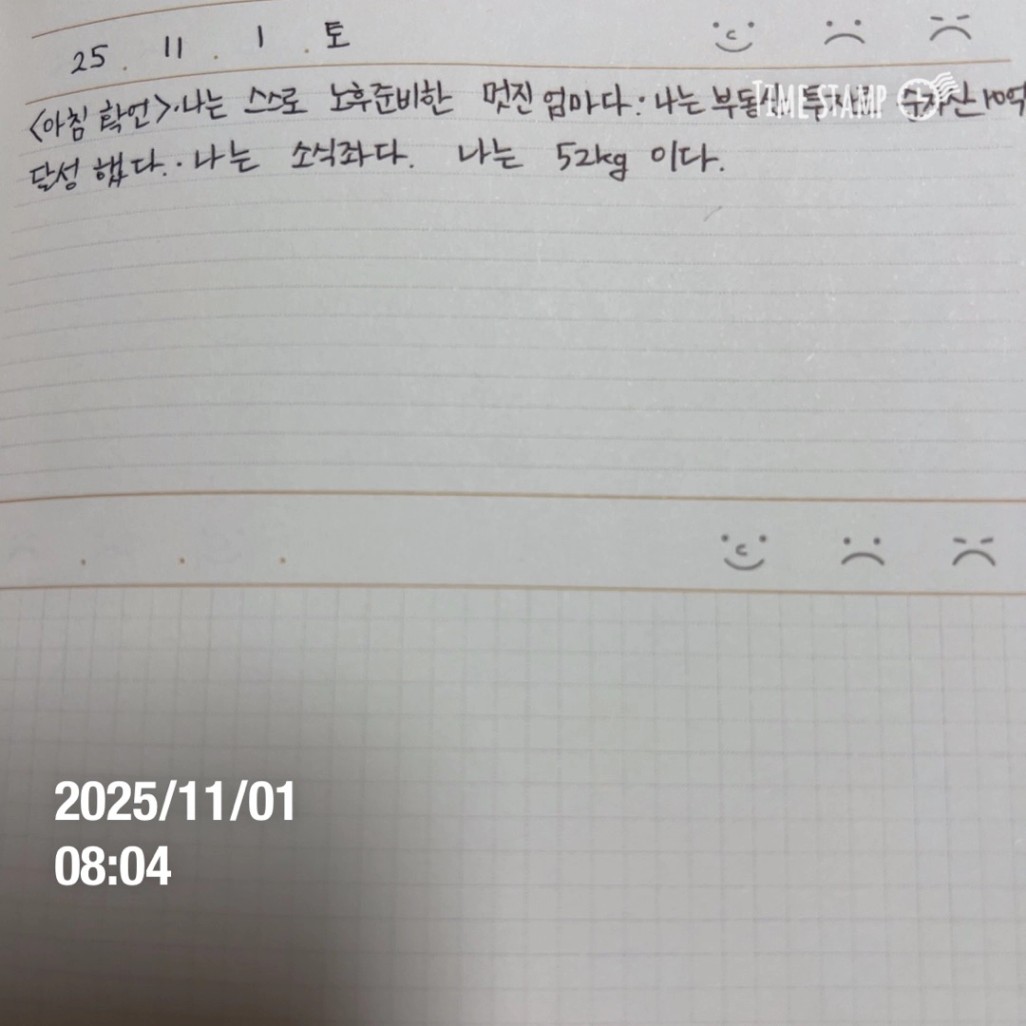 25. 11. 1. 토
<아침 확언>·나는 스스로 노후준비한 멋진 엄마다·나는 부동산 투자로 순자산 10억
달성 했다.·나는 소식좌다. 나는 52kg 이다.
TIMESTAMP
2025/11/01
08:04